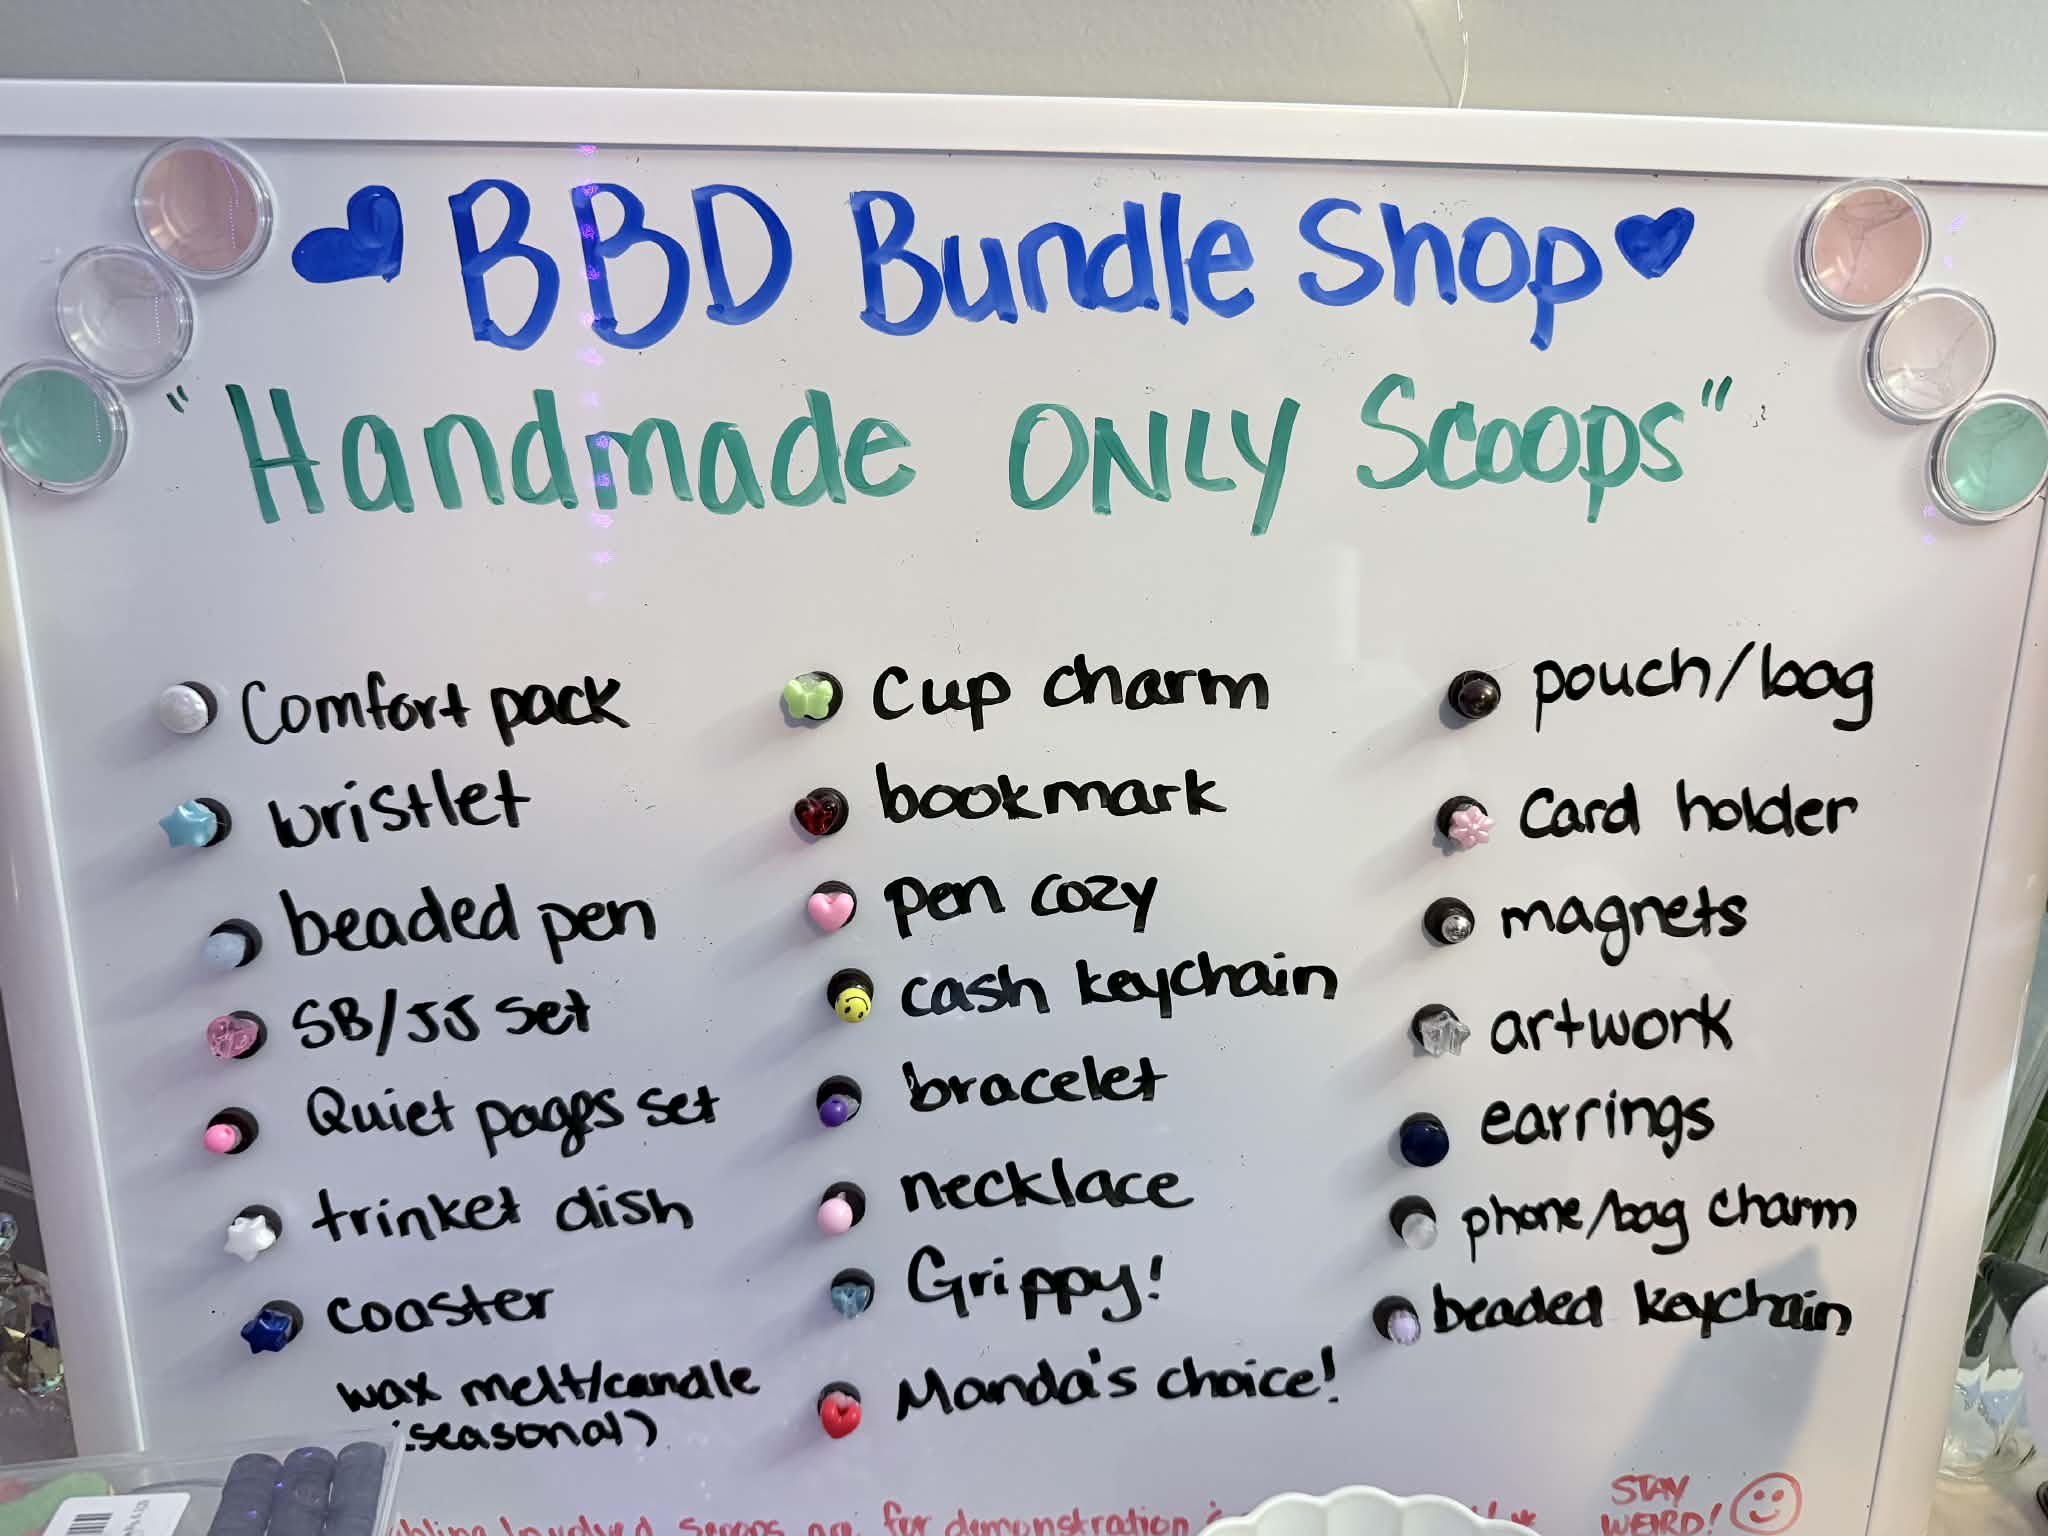 BBD Bundle Shop
"Handmade ONLY Scoops"
Comfort pack
wristlet
beaded pen
SB/JJ set
Quiet pages set
trinket dish
coaster
wax melt/candle
(seasonal)
cup charm
bookmark
pen cozy
cash keychain
bracelet
necklace
Grippy!
Manda's choice!
pouch/bag
card holder
magnets
artwork
earrings
phone/bag charm
beaded keychain
involved scoops are for demonstration
STAY
WEIRD!